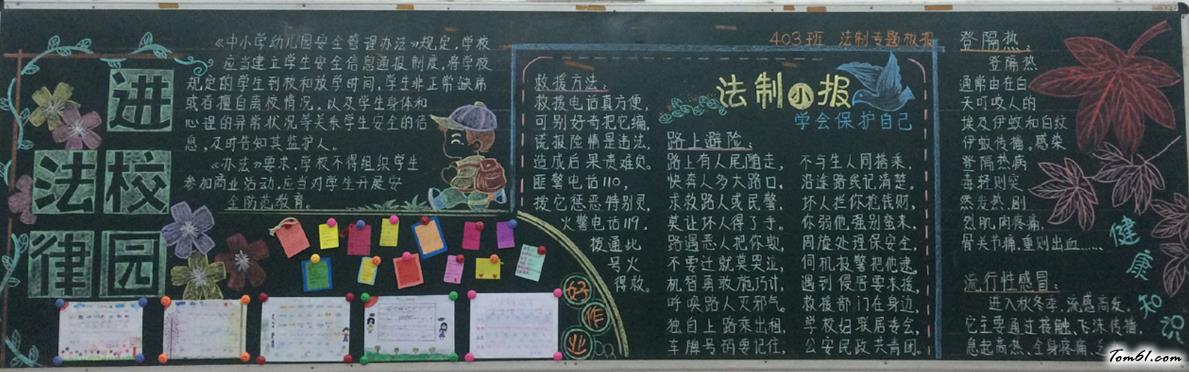 进
法校
律园
《中小学幼儿园安全管理办法》规定,学校
应当建立学生安全信息通报制度,将学校
规定的学生到校和放学时间、学生非正常缺席
或者擅自离校情况、以及学生身体和
心理的异常状况等关系学生安全的信
息,及时告知其监护人。
《办法》要求,学校不得组织学生
参加商业活动,应当对学生开展安
全防范教育。
好
作
业
403班 法制专题板报
救援方法:
救援电话真方便,
可别好奇把它编,
谎报险情是违法,
造成后果责难负。
匪警电话110,
拨它惩恶特别灵,
火警电话119,
拨通此
号火
得放。
法制小报
学会保护自己
路上避险:
路上有人尾随走,
快奔人多大路口,
求救路人或民警,
莫让坏人得了手。
路遇恶人把你欺,
不要过就莫哭泣,
机智勇敢施巧计,
呼唤路人灭邪气,
独自上路乘出租,
车牌号码要记住,
不与生人同搭乘,
沿途路线记清楚。
坏人拦你抢钱财,
你弱他强别蛮来,
周旋处理保安全,
伺机报警把他逮,
遇到侵害要求援,
救援部门在身边,
学校妇联居委会,
公安民政共青团。
登隔热:
登隔热
通常由在白
天叮咬人的
埃及伊蚊和白纹
伊蚊传播。感染
登隔热病
毒轻则突
然发热、剧
烈肌肉疼痛,
骨关节痛,重则出血……
流行性感冒:
进入秋冬季,流感高发。
它主要通过接触、飞沫传播
急起高热、全身疼痛、
健康知识
Tom61.com